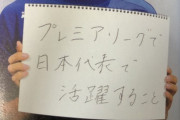 プレミアリーグで
日本代表で
活躍すること